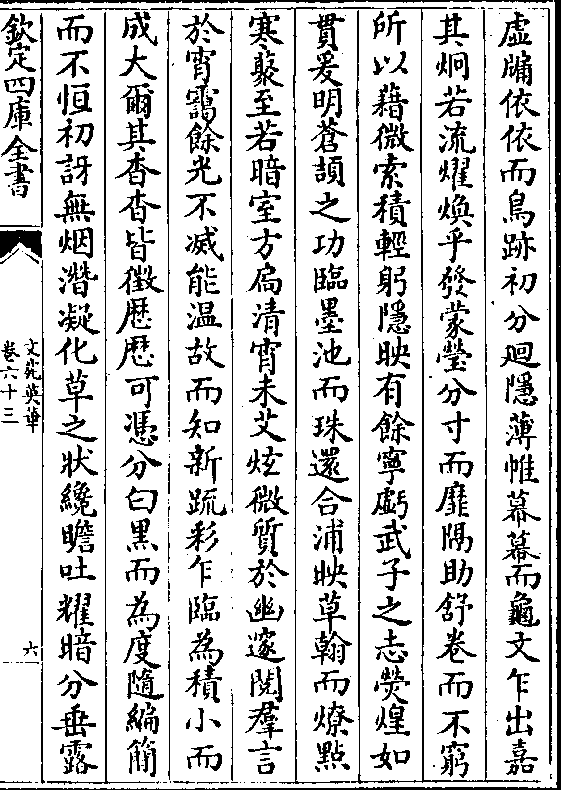 虚牖依依而鳥跡初分廻隱薄帷幕幕而龜文乍出嘉
其炯若流燿煥乎發蒙瑩分寸而靡隔助舒卷而不窮
所以藉微索積輕躬隱映有餘寧虧武子之志熒煌如
貫爰明蒼頡之功臨墨池而珠還合浦映草翰而燎點
寒藂至若暗室方扃清宵未艾炫微質於幽邃閱羣言
於宵靄餘光不減能温故而知新疏彩乍臨為積小而
成大爾其杳杳皆徵歴歴可憑分白黑而為度隨編簡
而不恒初訝無烟潛凝化草之狀纔瞻吐耀暗分垂露
欽定四庫全書
文苑英華
卷六十三
六